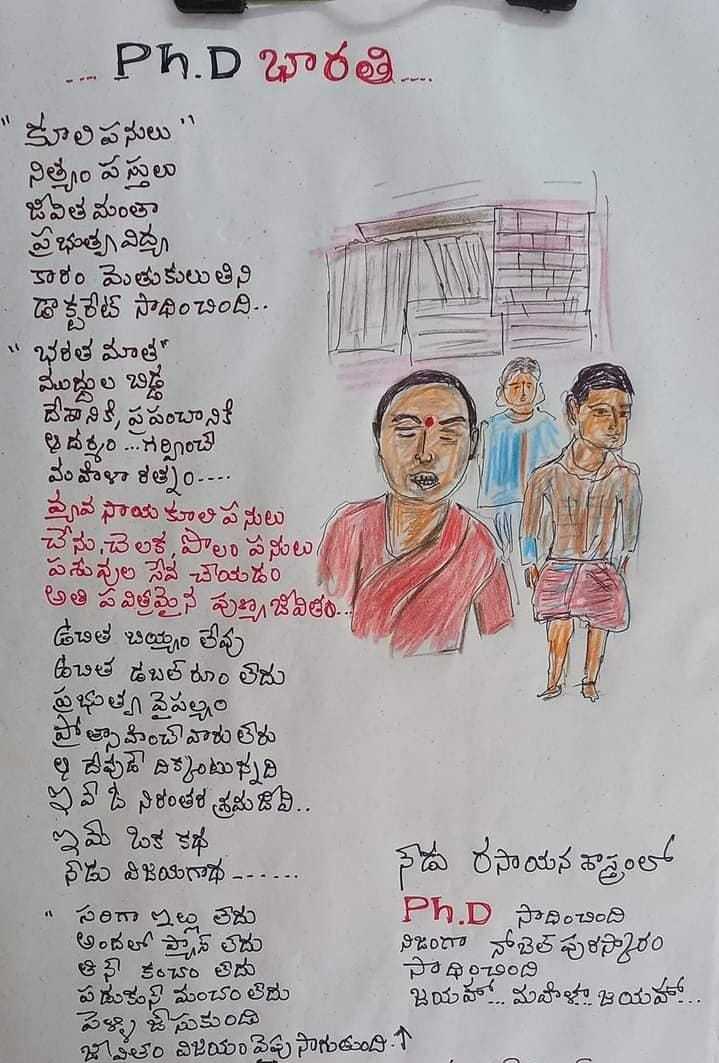 ... Ph.D భారతి ....
"కూలి పనులు"
నిత్యం పస్తులు
జీవిత మంతా
ప్రభుత్వ విద్య
కారం మెతుకులు తిని
డాక్టరేట్ సాధించింది..
"భరత మాత"
ముద్దుల బిడ్డ
దేశానికే, ప్రపంచానికే
ఆదర్శం ... గర్వించే
మహిళా రత్నం----
వ్యవసాయ కూలి పనులు
చేను, చెలక, పొలం పనులు
పశువుల సేవ చేయడం
అతి పవిత్రమైన పుణ్య జీవితం...
ఉచిత బియ్యం లేవు
ఉచిత డబల్ రూం లేదు
ప్రభుత్వ వైపల్యం
ప్రోత్సాహించే వారు లేరు
ఆ దేవుడే దిక్కంటున్నది
ఈమే ఓ నిరంతర శ్రమ జీవి..
ఈమే ఒక కథ
నేడు విజయగాథ ------
"సరిగా ఇల్లు లేదు
అందులో ఫ్యాన్ లేదు
తినే కంచం లేదు
పడుకునే మంచం లేదు
పెళ్ళి చేసుకుంది
జీవితం విజయం వైపు సాగుతుంది.↑
నేడు రసాయన శాస్త్రంలో
Ph.D సాధించింది
నిజంగా నోబెల్ పురస్కారం
సాధించింది
జయహో... మహిళా జయహో...